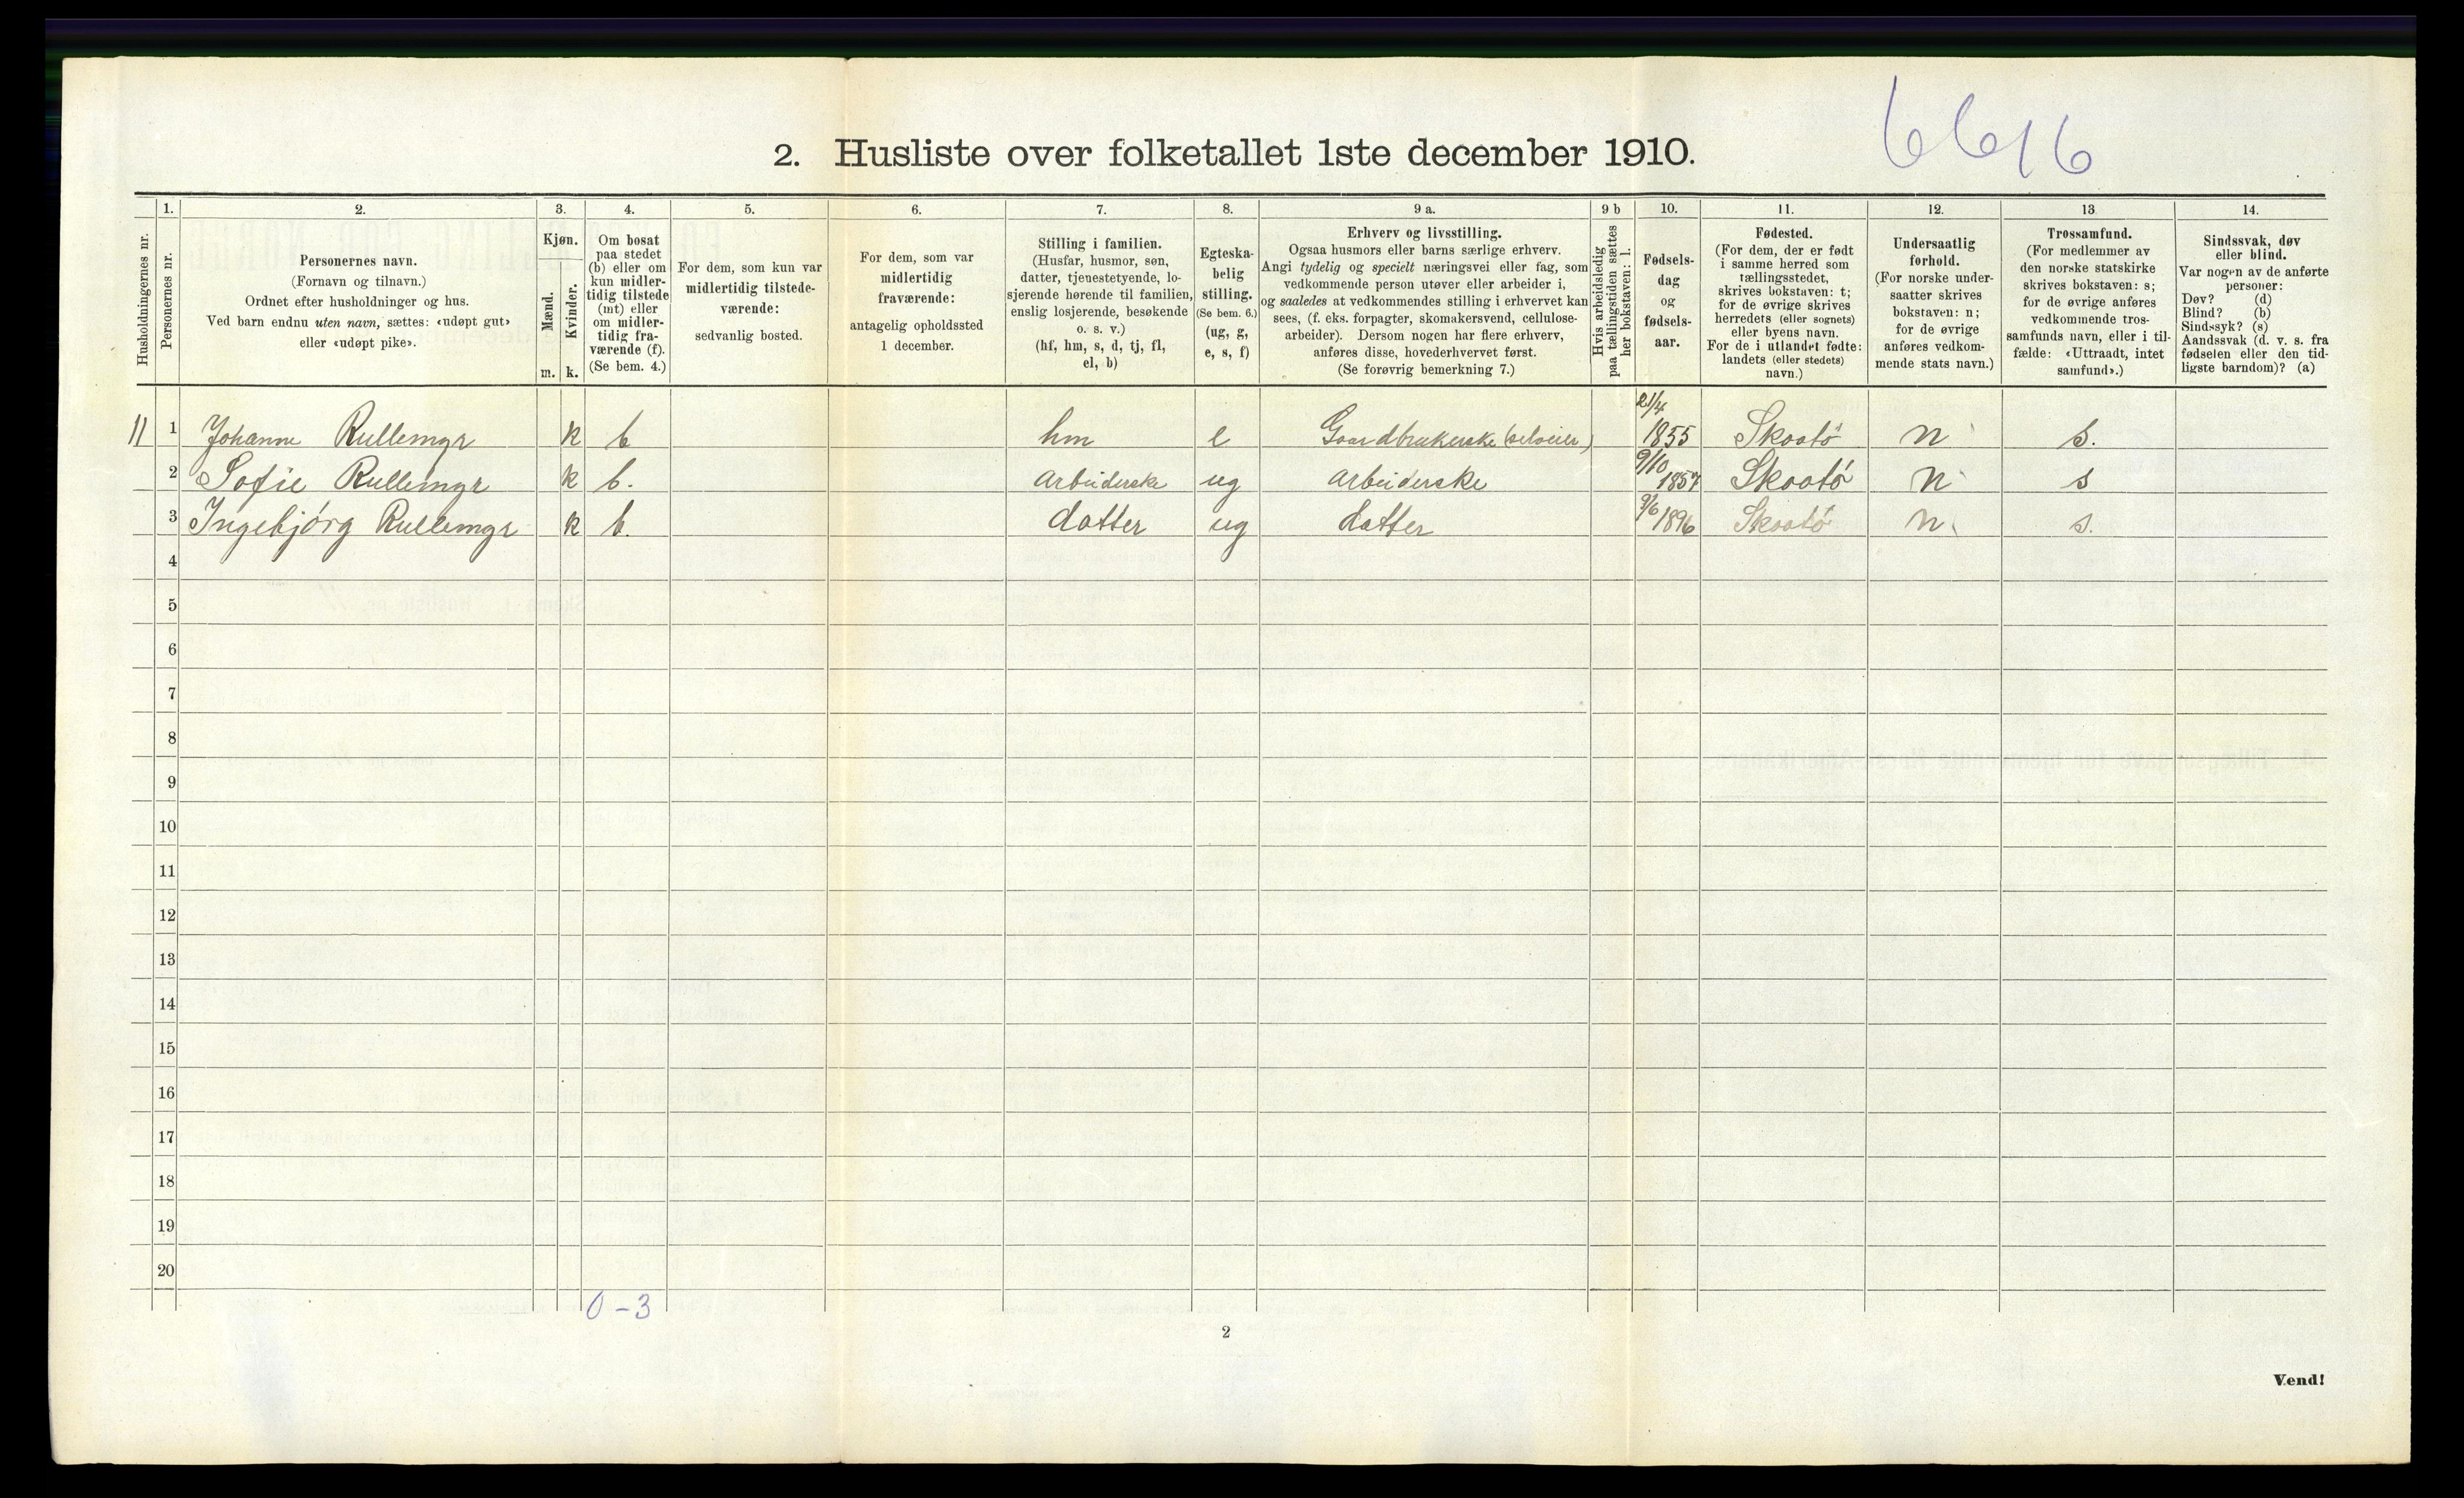 6616
2. Husliste over folketallet 1ste december 1910.
1. 2. 3. 4. 5. 6. 7. 8. 9 a. 9 b 10. 11. 12. 13 14.
Husholdningernes nr.
Personernes nr.
Personernes navn.
(Fornavn og tilnavn.)
Ordnet efter husholdninger og hus.
Ved barn endnu uten navn, sættes: «udøpt gut»
eller «udøpt pike».
Kjøn.
Mænd.
Kvinder.
m. k.
Om bosat
paa stedet
(b) eller om
kun midler-
tidig tilstede
(mt) eller
om midler-
tidig fra-
værende (f).
(Se bem. 4.)
For dem, som kun var
midlertidig tilstede-
værende:
sedvanlig bosted.
For dem, som var
midlertidig
fraværende:
antagelig opholdssted
1 december.
Stilling i familien.
(Husfar, husmor, søn,
datter, tjenestetyende, lo-
sjerende hørende til familien,
enslig losjerende, besøkende
o. s. v.)
(hf, hm, s, d, tj, fl,
el, b)
Egteska-
belig
stilling.
(Se bem. 6.)
(ug, g,
e, s, f)
Erhverv og livsstilling.
Ogsaa husmors eller barns særlige erhverv.
Angi tydelig og specielt næringsvei eller fag, som
vedkommende person utøver eller arbeider i,
og saaledes at vedkommendes stilling i erhvervet kan
sees, (f. eks. forpagter, skomakersvend, cellulose-
arbeider). Dersom nogen har flere erhverv,
anføres disse, hovederhvervet først.
(Se forøvrig bemerkning 7.)
Hvis arbeidsledig
paa tællingstiden sættes
her bokstaven: l.
Fødsels-
dag
og
fødsels-
aar.
Fødested.
(For dem, der er født
i samme herred som
tællingsstedet,
skrives bokstaven: t;
for de øvrige skrives
herredets (eller sognets)
eller byens navn.
For de i utlandet fødte:
landets (eller stedets)
navn.)
Undersaatlig
forhold.
(For norske under-
saatter skrives
bokstaven: n;
for de øvrige
anføres vedkom-
mende stats navn.)
Trossamfund.
(For medlemmer av
den norske statskirke
skrives bokstaven: s;
for de øvrige anføres
vedkommende tros-
samfunds navn, eller i til-
fælde: «Uttraadt, intet
samfund».)
Sindssvak, døv
eller blind.
Var nogen av de anførte
personer:
Døv? (d)
Blind? (b)
Sindssyk? (s)
Aandssvak (d. v. s. fra
fødselen eller den tid-
ligste barndom)? (a)
11 1 Johanne Rullemyr k b hm e Gaardbrukerske (selveier) 21/4 1855 Skaatö n s.
2 Sofie Rullemyr k b. arbeiderske ug arbeiderske 9/10 1857 Skaatö n s
3 Ingebjörg Rullemyr k b. datter ug datter 9/6 1896 Skaatö n. s.
4
5
6
7
8
9
10
11
12
13
14
15
16
17
18
19
20
0-3
2
Vend!